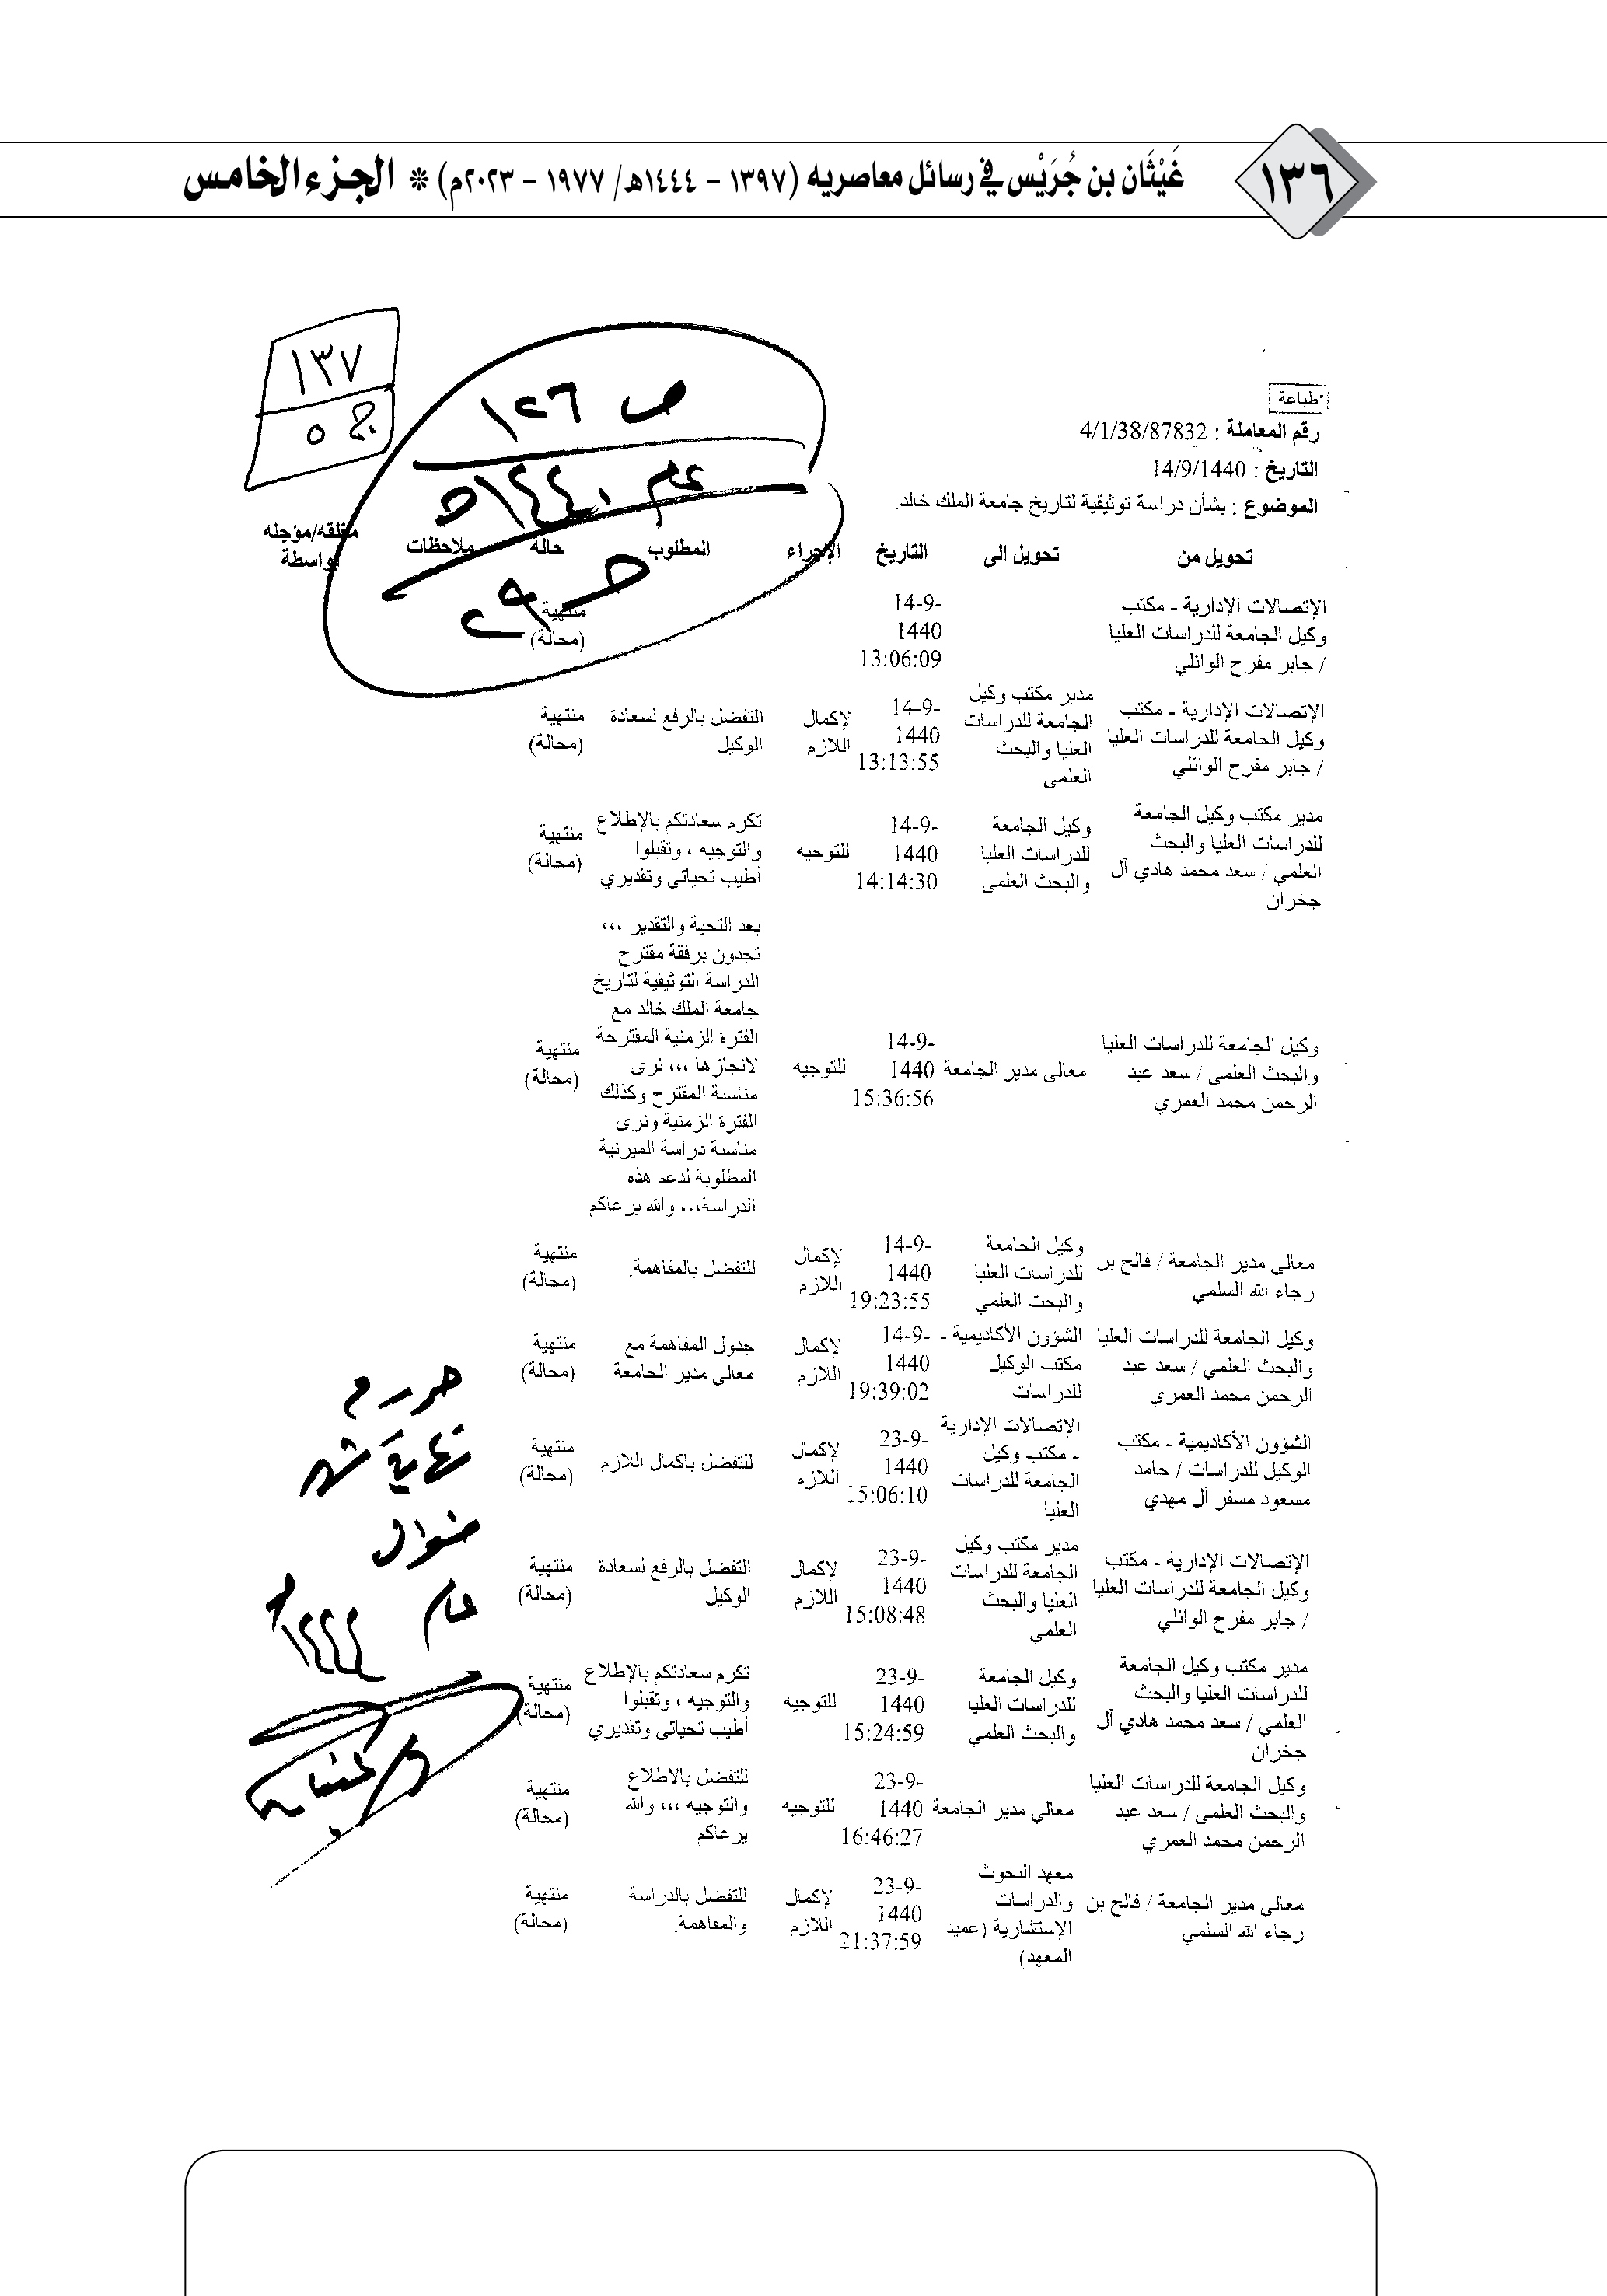 ١٣٦
غَيْثَان بن جُرَيْس في رسائل معاصريه (١٣٩٧ – ١٤٤٤هـ/ ١٩٧٧ – ٢٠٢٣م) * الجزء الخامس
١٣٧
ج ٥
ص ١٢٦
عام ١٤٤٠هـ
طباعة
رقم المعاملة : 4/1/38/87832
التاريخ : 14/9/1440
الموضوع : بشأن دراسة توثيقية لتاريخ جامعة الملك خالد.
تحويل من تحويل الى التاريخ الإجراء المطلوب حالة ملاحظات مغلقه/مؤجله
بواسطة
الإتصالات الإدارية - مكتب
وكيل الجامعة للدراسات العليا
/ جابر مفرح الوائلي
14-9-
1440
13:06:09
منتهية
(محالة)
الإتصالات الإدارية - مكتب
وكيل الجامعة للدراسات العليا
/ جابر مفرح الوائلي
مدير مكتب وكيل
الجامعة للدراسات
العليا والبحث
العلمي
14-9-
1440
13:13:55
لإكمال
اللازم
التفضل بالرفع لسعادة
الوكيل
منتهية
(محالة)
مدير مكتب وكيل الجامعة
للدراسات العليا والبحث
العلمي / سعد محمد هادي آل
جخران
وكيل الجامعة
للدراسات العليا
والبحث العلمي
14-9-
1440
14:14:30
للتوجيه
تكرم سعادتكم بالإطلاع
والتوجيه ، وتقبلوا
أطيب تحياتي وتقديري
منتهية
(محالة)
وكيل الجامعة للدراسات العليا
والبحث العلمي / سعد عبد
الرحمن محمد العمري
معالي مدير الجامعة
14-9-
1440
15:36:56
للتوجيه
بعد التحية والتقدير ،،،
تجدون برفقة مقترح
الدراسة التوثيقية لتاريخ
جامعة الملك خالد مع
الفترة الزمنية المقترحة
لانجازها ،،، نرى
مناسبة المقترح وكذلك
الفترة الزمنية ونرى
مناسبة دراسة الميزنية
المطلوبة لدعم هذه
الدراسة،،، والله يرعاكم
منتهية
(محالة)
معالي مدير الجامعة / فالح بن
رجاء الله السلمي
وكيل الجامعة
للدراسات العليا
والبحث العلمي
14-9-
1440
19:23:55
لإكمال
اللازم
للتفضل بالمفاهمة.
منتهية
(محالة)
وكيل الجامعة للدراسات العليا
والبحث العلمي / سعد عبد
الرحمن محمد العمري
الشؤون الأكاديمية -
مكتب الوكيل
للدراسات
14-9-
1440
19:39:02
لإكمال
اللازم
جدول المفاهمة مع
معالي مدير الجامعة
منتهية
(محالة)
الشؤون الأكاديمية - مكتب
الوكيل للدراسات / حامد
مسعود مسفر آل مهدي
الإتصالات الإدارية
- مكتب وكيل
الجامعة للدراسات
العليا
23-9-
1440
15:06:10
لإكمال
اللازم
للتفضل باكمال اللازم
منتهية
(محالة)
الإتصالات الإدارية - مكتب
وكيل الجامعة للدراسات العليا
/ جابر مفرح الوائلي
مدير مكتب وكيل
الجامعة للدراسات
العليا والبحث
العلمي
23-9-
1440
15:08:48
لإكمال
اللازم
التفضل بالرفع لسعادة
الوكيل
منتهية
(محالة)
مدير مكتب وكيل الجامعة
للدراسات العليا والبحث
العلمي / سعد محمد هادي آل
جخران
وكيل الجامعة
للدراسات العليا
والبحث العلمي
23-9-
1440
15:24:59
للتوجيه
تكرم سعادتكم بالإطلاع
والتوجيه ، وتقبلوا
أطيب تحياتي وتقديري
منتهية
(محالة)
وكيل الجامعة للدراسات العليا
والبحث العلمي / سعد عبد
الرحمن محمد العمري
معالي مدير الجامعة
23-9-
1440
16:46:27
للتوجيه
للتفضل بالاطلاع
والتوجيه ،،، والله
يرعاكم
منتهية
(محالة)
معالي مدير الجامعة / فالح بن
رجاء الله السلمي
معهد البحوث
والدراسات
الإستشارية (عميد
المعهد)
23-9-
1440
21:37:59
لإكمال
اللازم
للتفضل بالدراسة
والمفاهمة.
منتهية
(محالة)
نهاية شهر
شوال
عام